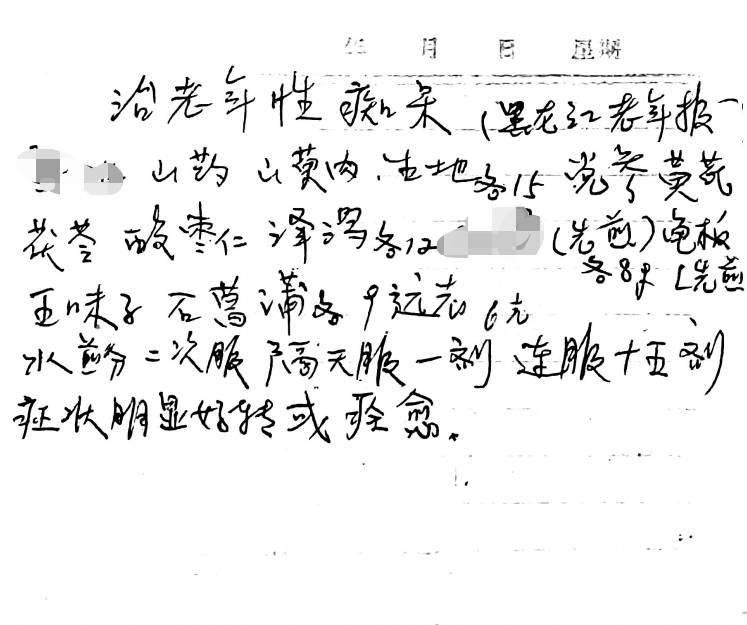 年 月 日 星期
治老年性痴呆 (黑龙江老年报
山药 山萸肉、生地各15 党参 黄芪
茯苓 酸枣仁 泽泻各12 (先煎)龟板
各8克 (先煎
五味子 石菖蒲各9 远志6克
水煎分二次服 隔天服一剂 连服十五剂
症状明显好转或痊愈.